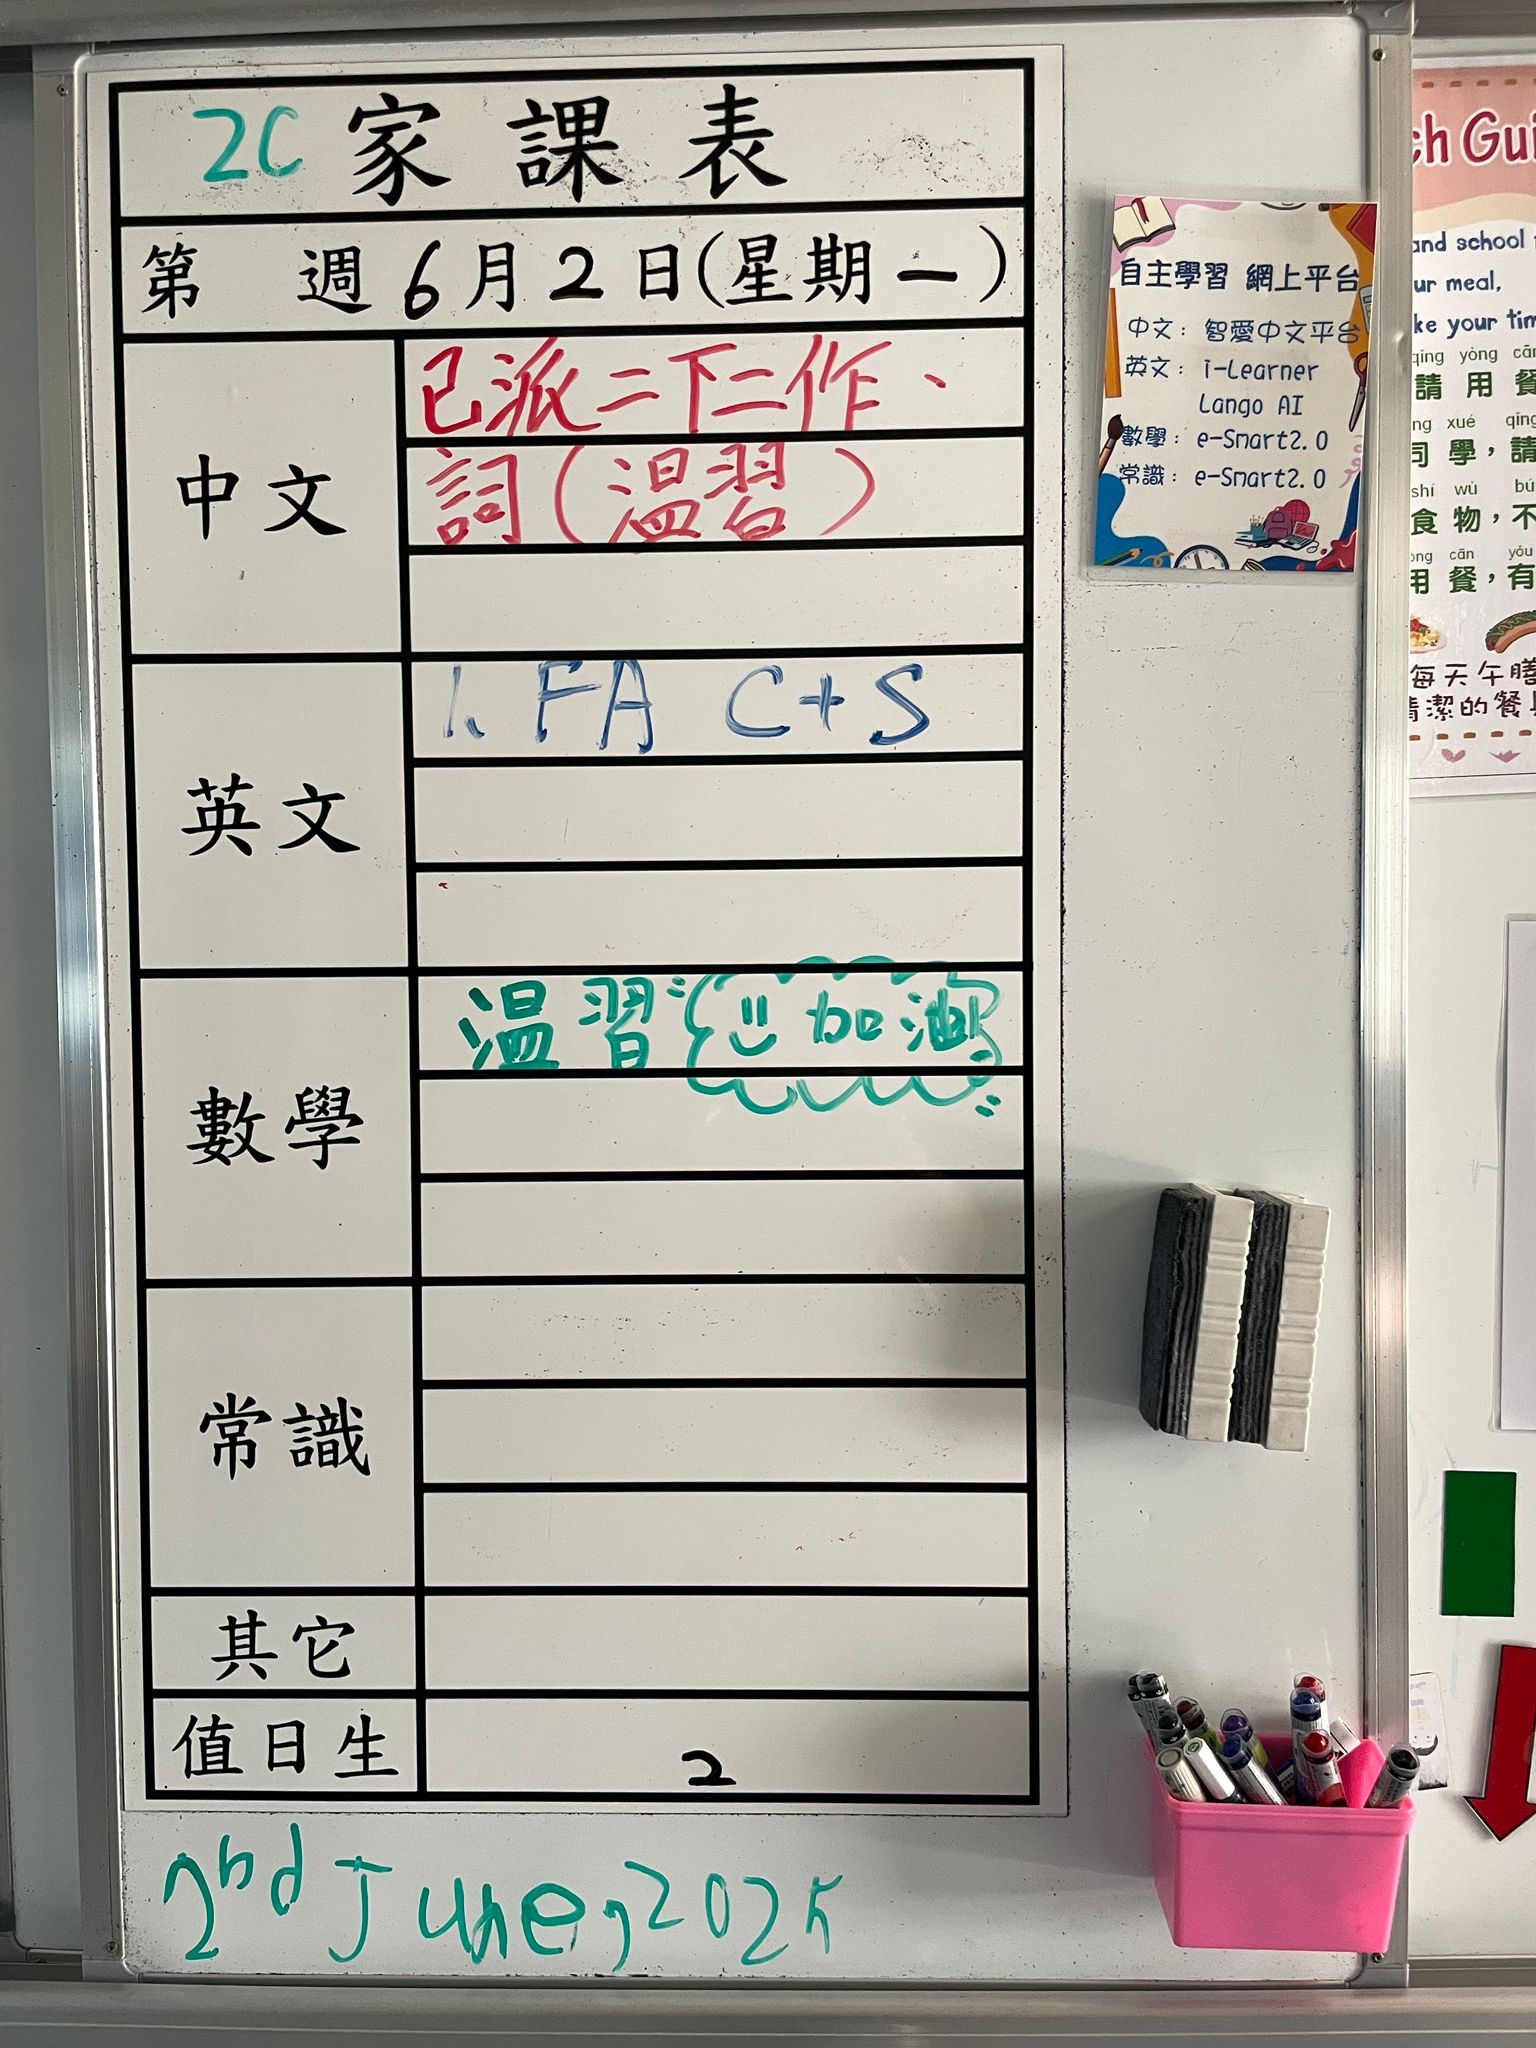 2C 家課表
第 週 6月2日(星期一)
中文
已派二下二作、
詞(溫習)
英文
1. FA C+S
數學
溫習 加油
常識
其它
值日生
2
2nd June, 2025
自主學習 網上平台
中文: 智愛中文平台
英文: i-Learner
Lango AI
數學: e-Smart2.0
常識: e-Smart2.0
ch Gui
and school
ur meal,
ke your tim
qǐng yòng cān
請用餐
ng xué qǐng
同學,請
shí wù bú
食物,不
òng cān yǒu
用餐,有
每天午膳
清潔的餐具